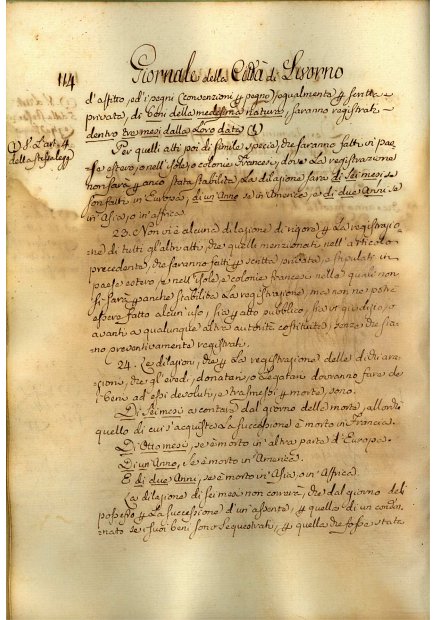 114
Giornale della Città di Livorno
d'affitto, ed i pegni (convenzioni di pegno) egualmente per scritta
privata, di beni della medesima natura, saranno registrati
dentro tre mesi dalla loro data (1)
(1) V. l'art. 4
della stessa legge
Per quelli atti poi di simile specie, che saranno fatti in pae
se estero, o nell'isole, o colonie Francesi, dove la registrazione
non sarà per anco stata stabilita, la dilazione sarà di sei mesi se
son fatti in Europa, di un Anno se in America, e di due Anni se
in Asia, o in affrica.
23. Non vi è alcuna dilazione di rigore per la registrazio
ne di tutti gl'altri atti, che quelli menzionati nell'articolo
precedente, che saranno fatti per scritta privata, e stipulati in
paese estero, e nell'isole, e colonie francesi nelle quali non
si sarà per anche stabilita la registrazione, ma non ne potrà
essere fatto alcun'uso, sia per atto pubblico, sia in giudizio, o
avanti a qualunque altra autorità costituita, senza che sia
no preventivamente registrati.
24. Le dilazioni, che per la registrazione delle dichiara
zioni, che gl'eredi, donatari, o legatari dovranno fare de
i beni ad essi devoluti, e trasmessi per morte, sono.
Di Sei mesi a contare dal giorno della morte, allorchè
quello di cui s'acquista la successione è morto in Francia.
Di Otto mesi, se è morto in altra parte d'Europa.
Di un Anno, se è morto in America.
E di due Anni, se è morto in Asia, o in Affrica.
La dilazione di sei mesi non correrà, che dal giorno del
possesso per la successione d'un assente, per quella di un condan
nato se i suoi beni sono sequestrati, per quella che fosse stata